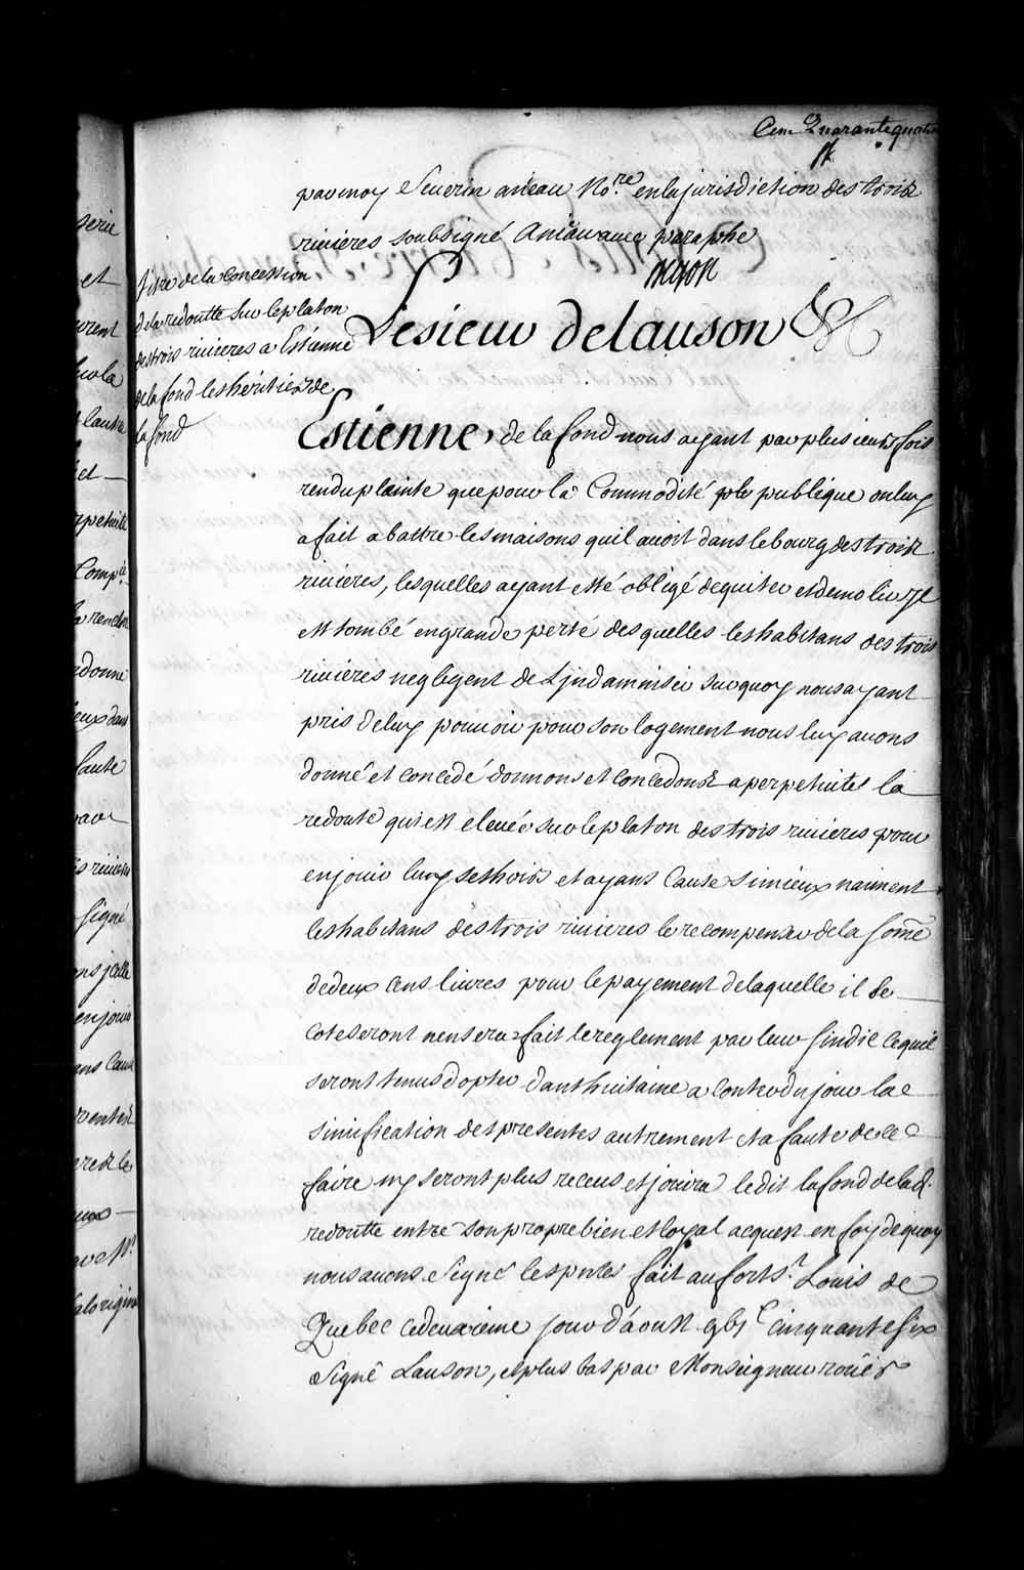 Cent Quarante quatre
par moy Severin ameau No.re en la jurisdiction des trois
rivieres soubsigné Ameau avec paraphe
Le sieur de Lauson
titre de la Concession
de la redoutte sur le platon
des trois rivieres a Estienne
de la fond les heritiers de
la fond
Estienne, de la fond nous ayant par plusieurs fois
rendu plainte que pour la Commodité publique on luy
a fait abattre les maisons quil avoit dans le bourg des trois
rivieres, lesquelles ayant esté obligé de quiter et demolir Il
est tombé en grande perte desquelles les habitans des trois
rivieres neglegent de Ljndamniser sur quoy nous ayant
pris de luy pourvoir pour son logement nous luy avons
donné et concedé donnons et concedons a perpetuité la
redoute qui est elevée sur le platon des trois rivieres pour
en jouir luy ses hoirs et ayans Cause si mieux naiment
les habitans des trois rivieres le recompenser de la some
de deux cens livres pour le payement de laquelle il se
coteseront nen sera fait le reglement par leur sindic ce quil
seront tenus dopter dans huitaine a conter du jour la
sinification des presentes autrement et a faute de ce
faire ny seront plus receus et jouira ledit la fond de lad.
redoutte entre son propre bien et loyal acquest en foy de quoy
nous avons Signé les pntes fait au fort St. Louis de
Quebec ce deuxieme jour d'aoust gbic cinquante six
Signé Lauson, et plus bas par Monseigneur roüer
serie
et
la
lautre
et
perpetuité
Comp.ie
donne
eux dans
faute
rivieres
signé
ens jcelle
en jouir
ans Cause
loriginal